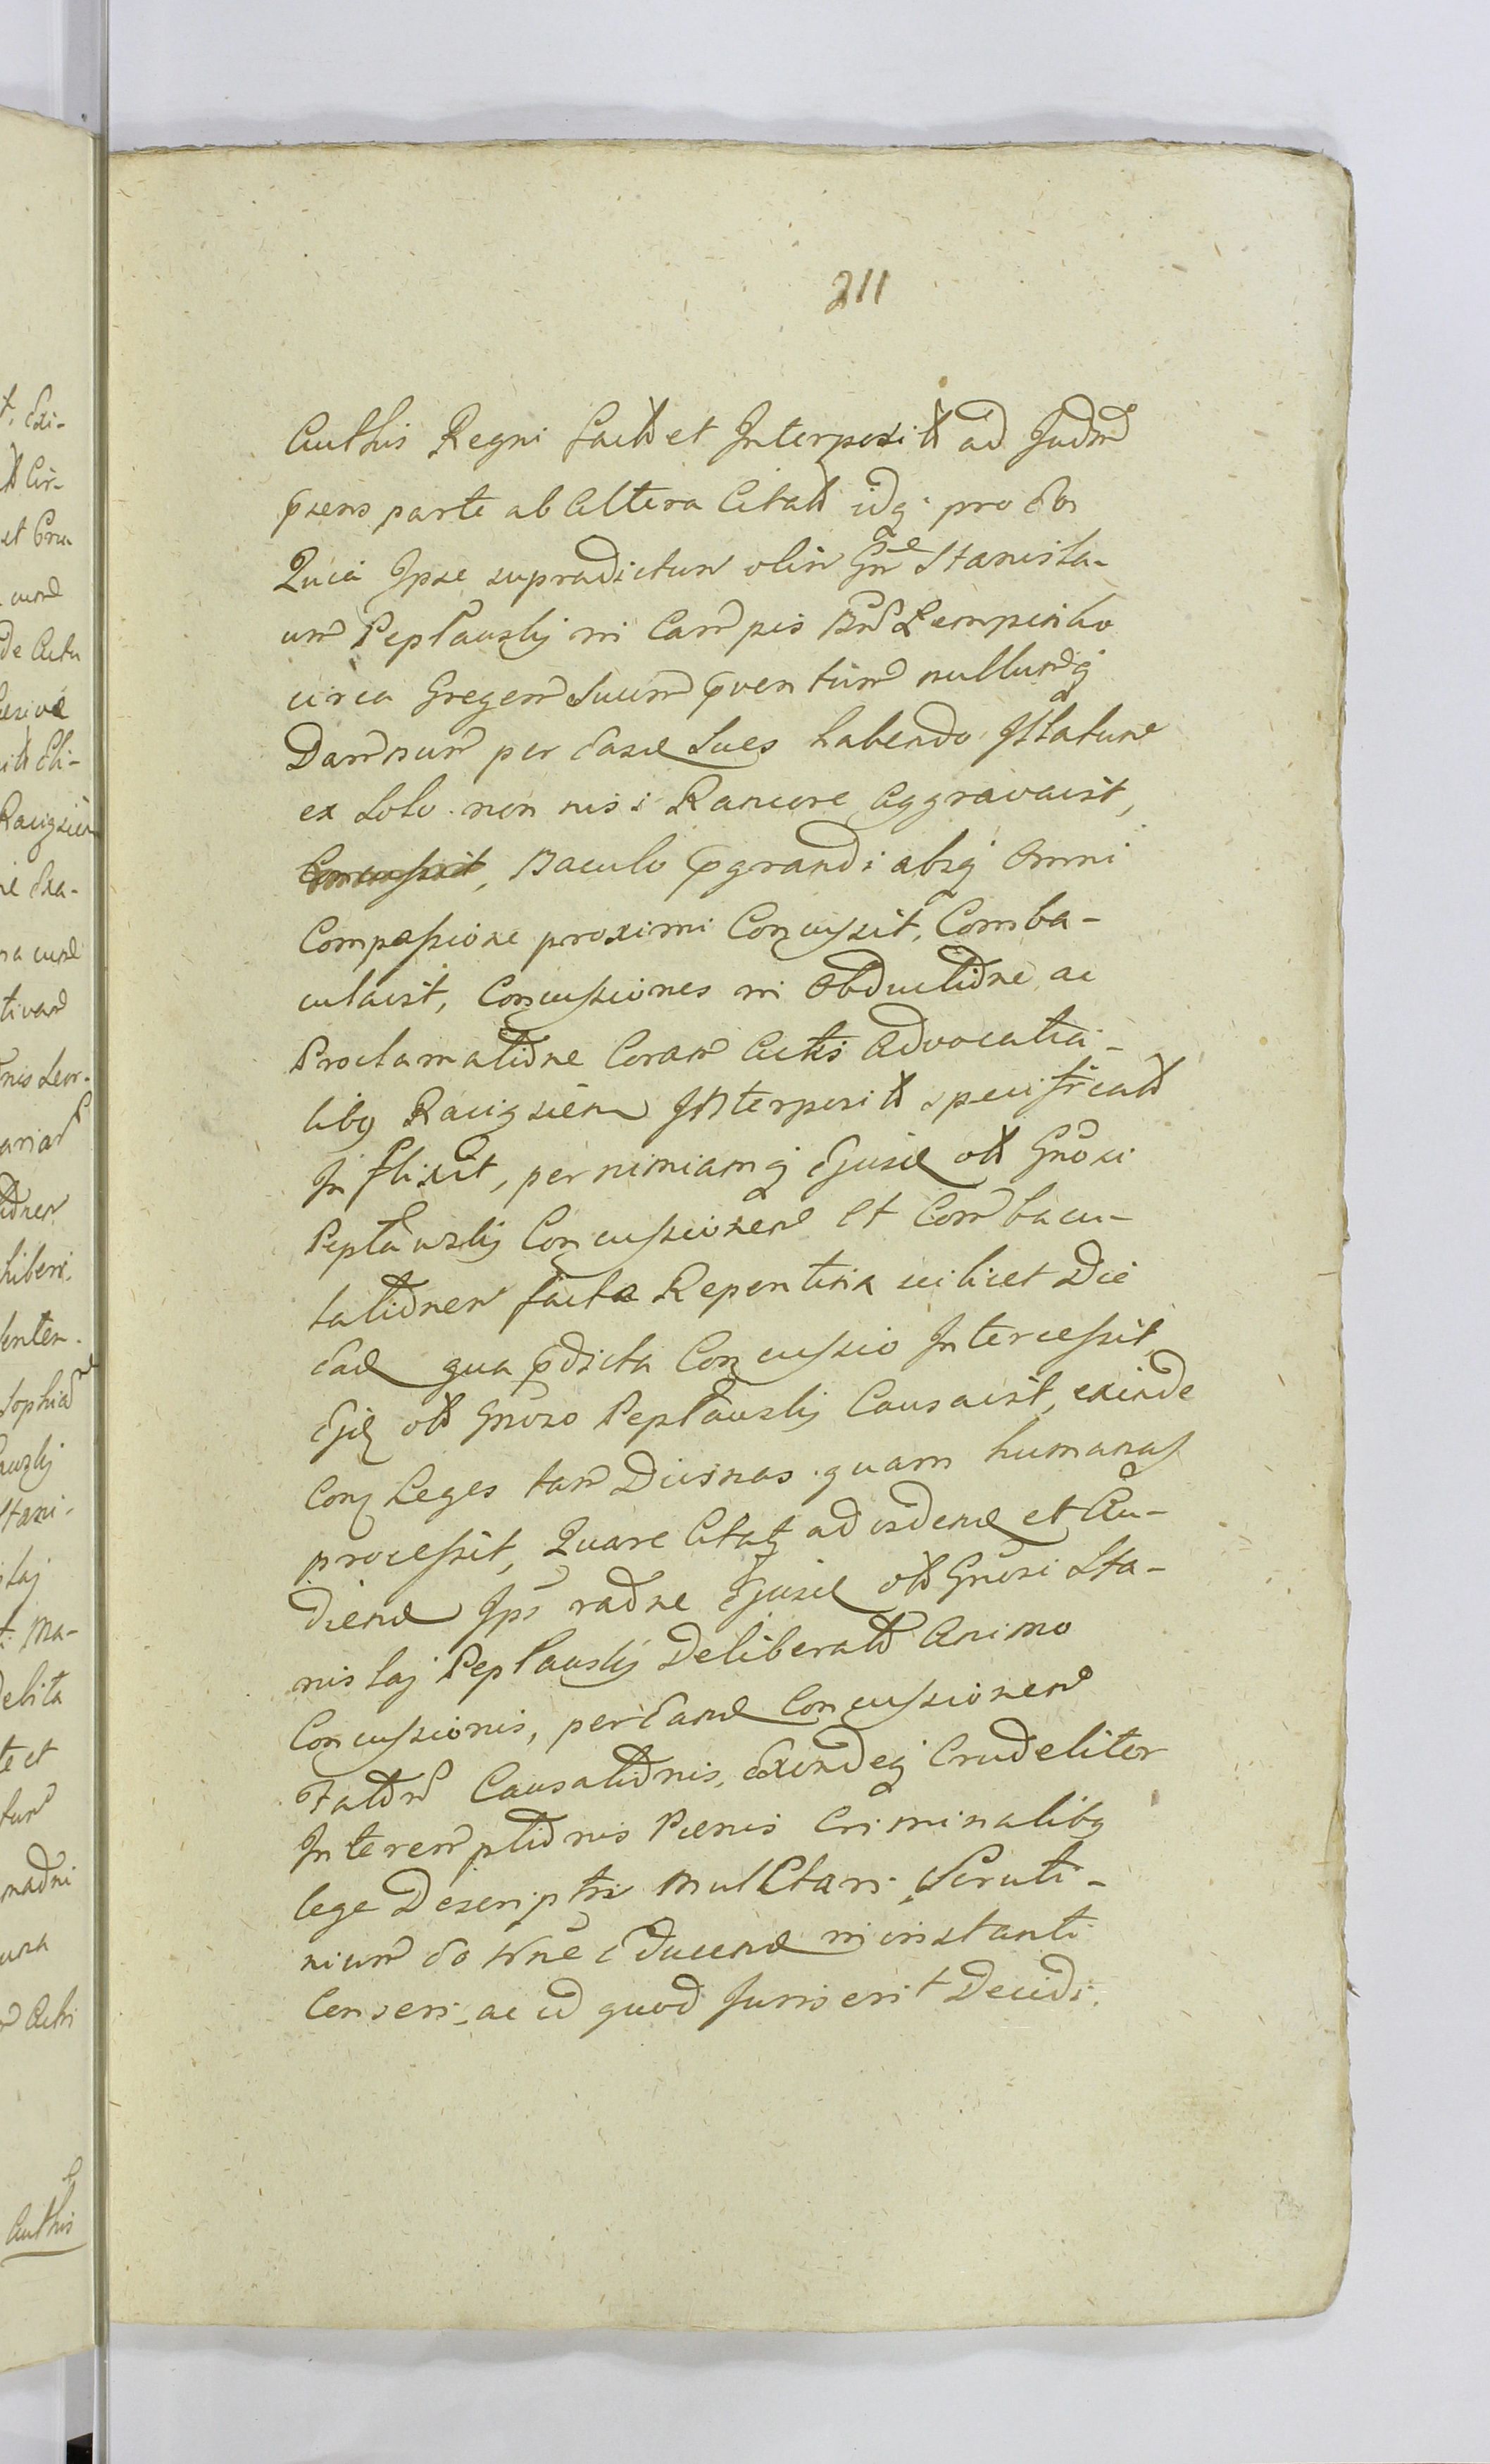 211
Authis Regni factt et Interposit ad Judm
pnens parte ab Altera Citatt idq pro Eo
Quia Ipse supradictum olim Gn Stanisla-
um Peplawskj in Campis Lempicko
circa Gregem Suum pventum nullumq
Damnum per Easd Sues habendo Illatum
ex Solo non nisi Rancore Aggravavit,
Baculo pgrandi absq Omni
Compassione proximi Concussit, Comba-
culavit, Concussiones in Obductione ac
Proclamatione Coram Actis Advocatia-
libq Raciązien Interposit specificatt
Inflixit, per nimiamq Ejusd ott Gnosi
Peplawskj Concussionem et Combacu-
lationem facta Repentina scilicet Die
Ead qua pdicta Concussio Intercessit,
Ejd ott Gnoso Peplawskj Causavit, exinde
Con Leges tam Divinas quam humanas
processit, Quare Citatq ad vidend et Au-
diend Ips raone Ejusd ott Gnosi Sta-
nislaj Peplawskj Deliberatt Animo
Concussionis, per Eand Concussionem
Causationis, Exindeq Crudeliter
Interemptionis Pœnis Criminalibq
lege Descriptis Mulctari, Scruti-
nium Eo Nne Educend in instanti
Censeri, ac id quod Juris erit Decidi.
Authis